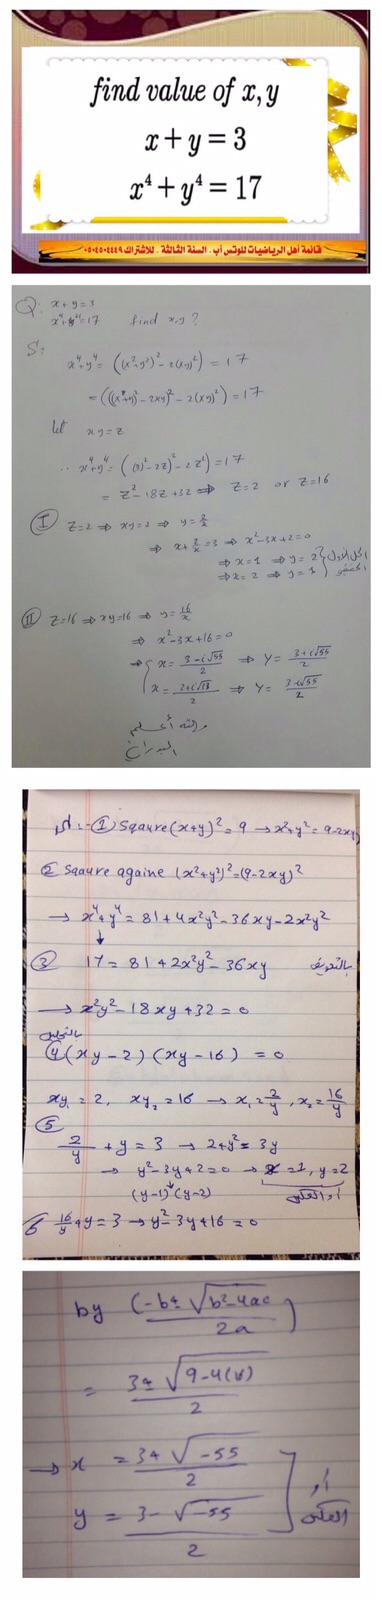 find value of x, y
x + y = 3
x⁴ + y⁴ = 17
قائمة أهل الرياضيات للوتس أب . السنة الثالثة . للاشتراك
Q: x + y = 3
x⁴+y⁴=17 find x,y ?
S:
x⁴+y⁴ = ((x²+y²)² - 2(xy)²) = 17
= (((x+y)² - 2xy)² - 2(xy)²) = 17
let xy = z
∴ x⁴+y⁴ = ((3)² - 2z)² - 2z² = 17
= z² - 18z + 32 ⇒ z=2 or z=16
I z=2 ⇒ xy=2 ⇒ y = 2/x
⇒ x + 2/x = 3 ⇒ x² - 3x + 2 = 0
⇒ x=1 ⇒ y=2
⇒ x=2 ⇒ y=1
II z=16 ⇒ xy=16 ⇒ y = 16/x
⇒ x² - 3x + 16 = 0
⇒ x = (3-i√55)/2 ⇒ y = (3+i√55)/2
⇒ y = (3-i√55)/2
والله أعلم
① Sqaure (x+y)² = 9 → x²+y² = 9-2xy
② Sqaure againe (x²+y²)² = (9-2xy)²
→ x⁴+y⁴ = 81 + 4x²y² - 36xy - 2x²y²
③ 17 = 81 + 2x²y² - 36xy بالتعويض
→ x²y² - 18xy + 32 = 0
④ (xy-2) (xy-16) = 0
xy₁ = 2, xy₂ = 16 → x₁ = 2/y, x₂ = 16/y
⑤
2/y + y = 3 → 2+y² = 3y
→ y² - 3y + 2 = 0 → x=1, y=2
(y-1) (y-2) أو العكس
6 16/y + y = 3 → y² - 3y + 16 = 0
by (-b ± √(b²-4ac) / 2a)
→ x = (3+√-55)/2
y = (3-√-55)/2
أو العكس